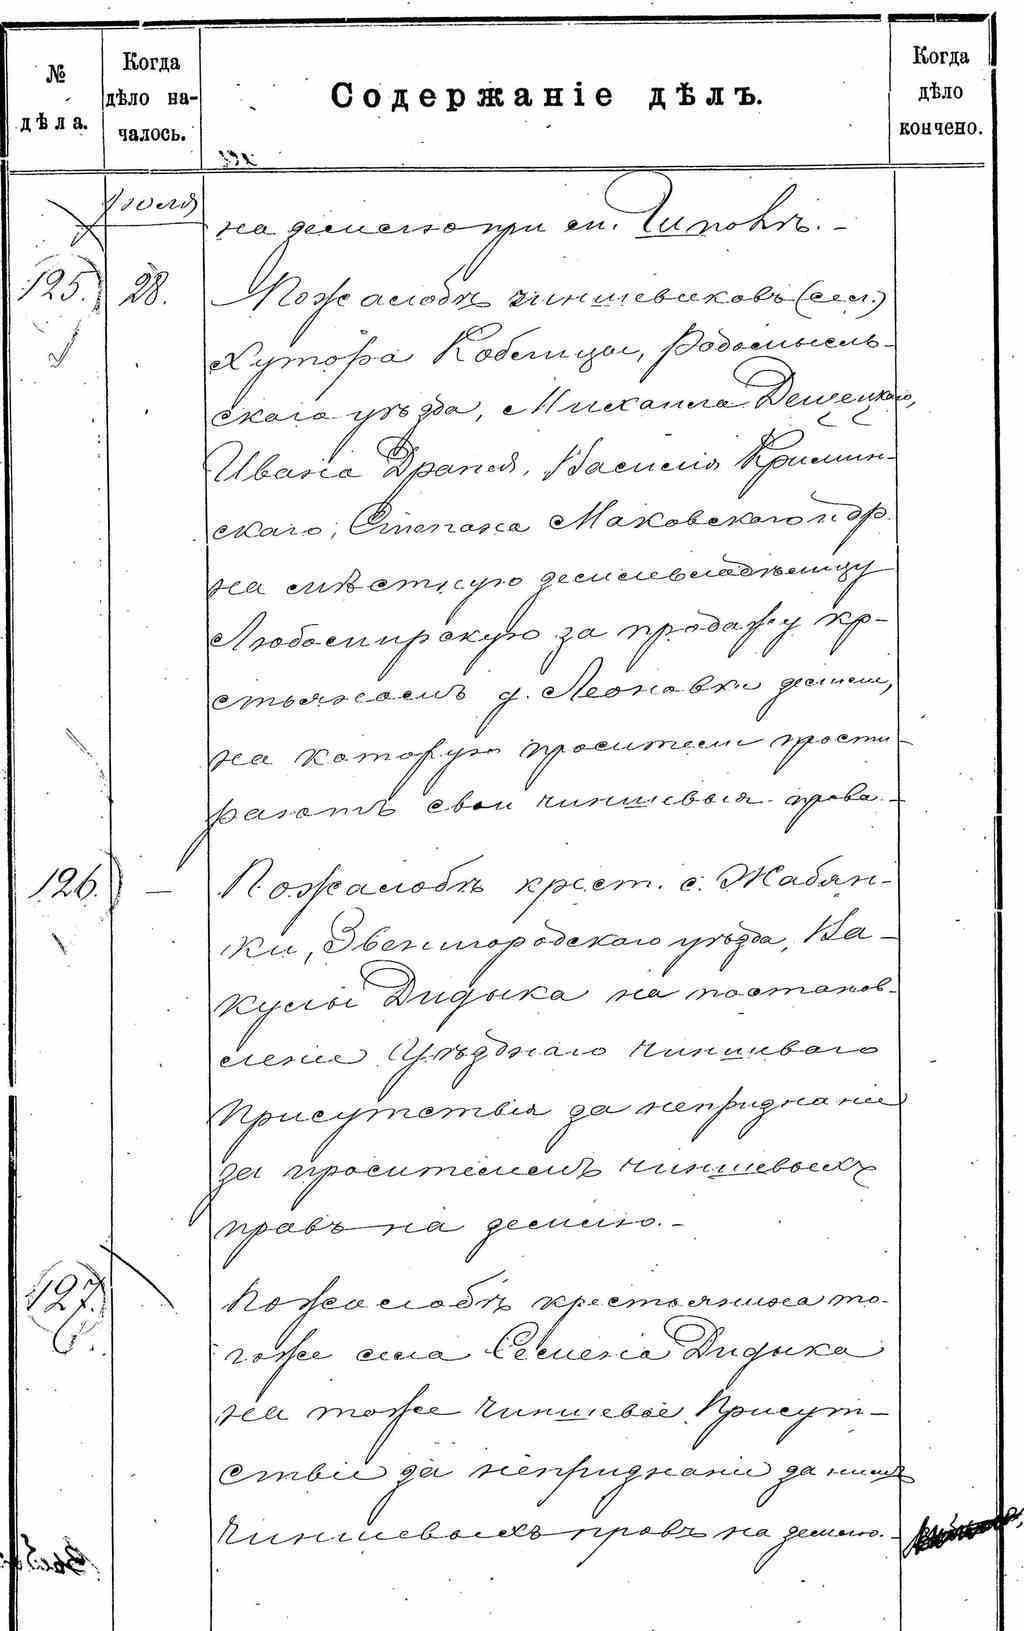 № дѣла.
Когда дѣло началось.
Содержаніе дѣлъ.
Когда дѣло кончено.
Іюля
на землю при ст. Чиповкѣ.
125. 28. По жалобѣ чиншевиковъ (сел.)
Хутора Кобелицы, Радомысль-
скаго уѣзда, Михаила Дешецкаго,
Ивана Драпея, Василія Кримин-
скаго, Степана Маковскаго и др.
на мѣстную землевладѣлицу
Любомирскую за продажу кр-
стьянамъ д. Леоновки земли,
на которую просители прости-
раютъ свои чиншевыя права.
126. — По жалобѣ крест. с. Жабян-
ки, Звенигородскаго уѣзда, Ва-
кулы Дидыка на постанов-
леніе Уѣзднаго чиншеваго
Присутствія за непризнаніе
за просителемъ чиншевыхъ
правъ на землю.
127. По жалобѣ крестьянина то-
гоже села Семена Дидыка
на тоже чиншевое Присут-
ствіе за непризнаніе за нимъ
чиншевыхъ правъ на землю.